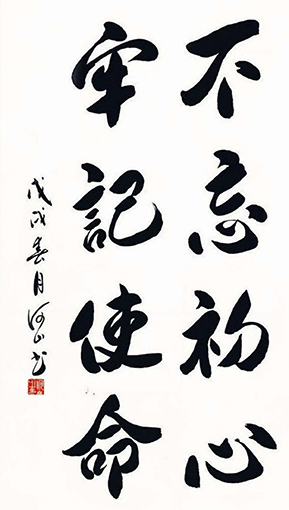 不忘初心
牢記使命
戊戌春月河山书